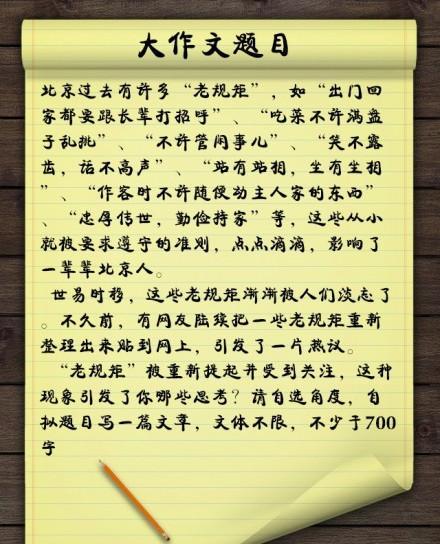 大作文题目
北京过去有许多“老规矩”，如“出门回
家都要跟长辈打招呼”、“吃菜不许满盘
子乱挑”、“不许管闲事儿”、“笑不露
齿，话不高声”、“站有站相，坐有坐相
”、“作客时不许随便动主人家的东西”
、“忠厚传世，勤俭持家”等，这些从小
就被要求遵守的准则，点点滴滴，影响了
一辈辈北京人。
世易时移，这些老规矩渐渐被人们淡忘了
。不久前，有网友陆续把一些老规矩重新
整理出来贴到网上，引发了一片热议。
“老规矩”被重新提起并受到关注，这种
现象引发了你哪些思考？请自选角度，自
拟题目写一篇文章，文体不限，不少于700
字